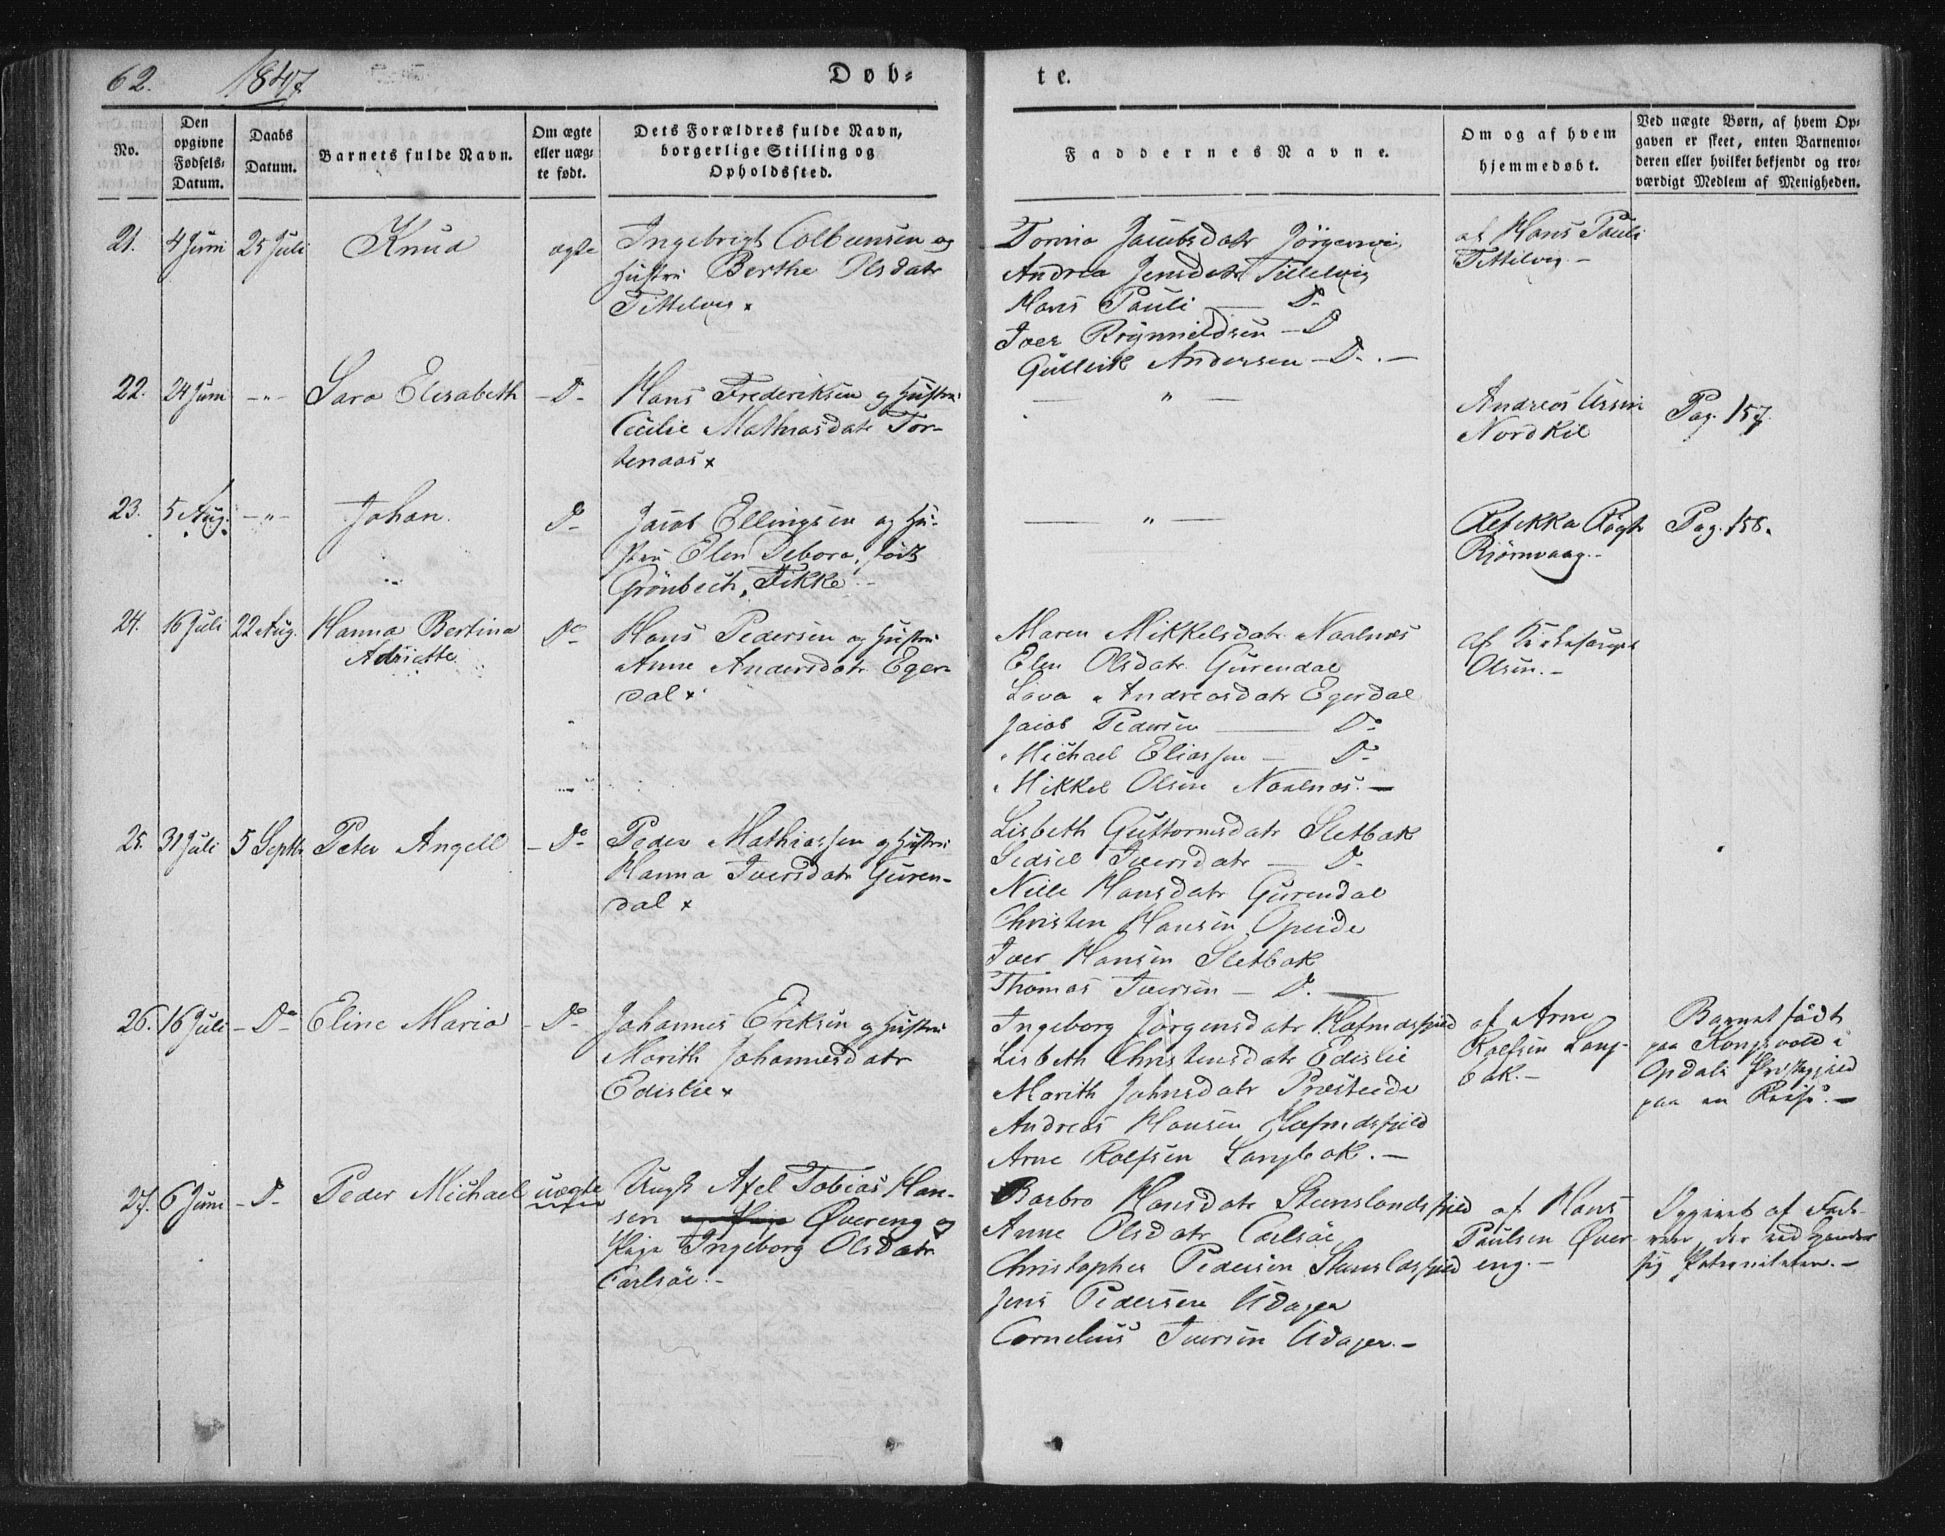 62. 1847 Døb- te.
No.
Den opgivne Fødsels-Datum.
Daabs Datum.
Barnets fulde Navn.
Om ægte eller uæg-te født.
Dets Forældres fulde Navn, borgerlige Stilling og Opholdssted.
Faddernes Navne.
Om og af hvem hjemmedøbt.
Ved uægte Børn, af hvem Op-gaven er skeet, enten Barnemo-deren eller hvilket bekjendt og tro-værdigt Medlem af Menigheden.
21. 4 Juni 25 Juli Knud ægte
Ingebrigt Colbensen og
Hustru Berthe Olsdatr
Tittelvig x
Torina Jacobsdatr Jörgenvig
Andrea Jensdatr Tittelvig
Hans Pauli — Do
Iver Brynnildsen — Do
Gullik Andersen — Do. —
af Hans Pauli
Tittelvig. —
22. 24 Juni — " — Sara Elisabeth — Do —
Hans Frederiksen og Hustru
Cecilie Mathiasdatr Tor-
tenaas x
— " —
Andreas Ursin
Nordkil
Pag. 157.
23. 5 Aug. — " — Johan. Do
Jacob Ellingsen og Hu-
stru Elen Debora, født
Grönbech, Fikke. —
— " —
Refikka Rögt
Bjørnvaag. —
Pag. 158.
24. 16 Juli 22 Aug. Hanna Bertina
Adriatte
Do
Hans Pedersen og Hustru
Anne Andersdatr Eger-
dal x
Maren Mikkelsdatr Naalnæs
Elen Olsdatr Gurendal
Lava Andreasdatr Egerdal
Jacob Pedersen — Do
Michael Eliassen — Do
Mikkel Olsen Naalnæs. —
af
Olsen. —
25. 31 Juli 5 Septb Peter Angell — Do
Peder Mathiassen og Hustru
Hanna Iversdatr Guren-
dal x
Lisbeth Guttormsdatr Sletbak
Sidsel Iversdatr — Do
Nille Hansdatr Gurendal
Christen Hansen Opeide
Iver Hansen Sletbak
Thomas Iversen — Do. —
26. 16 Juli — Do Eline Maria — Do
Johannes Eriksen og Hustru
Marith Johannesdatr
Edislie x
Ingeborg Jörgensdatr Hafmdsfjeld
Lisbeth Christensdatr Edislie
Marith Johnsdatr Præsteide
Andreas Hansen Hafmdsfjeld
Arne Rolfsen Langbak. —
af Arne
Rolfsen Lang-
bak. —
Barnet født
paa Kongsvold i
Opdals Præstegjeld
paa en Reise. —
27. 6 Juni — Do — Peder Michael uægte
Ungk Axel Tobias Han-
sen Øvereng og
Pige Ingeborg Olsdatr
Carlsöe. —
Barbro Hansdatr Stenslandsfjeld
Anne Olsdatr Carlsöe
Christopher Pedersen Stensldsfjeld
Jens Pedersen Udager
Cornelius Iversen Udager. —
af Hans
Paulsen Øver
eng. —
Opgivet af Fade-
ren, der vedkjender
sig Paterniteten. —